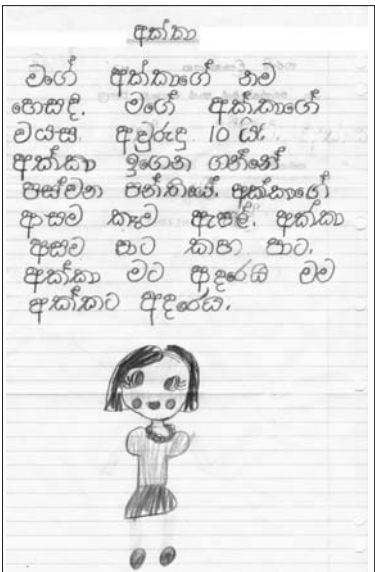 අක්කා
මගේ අක්කාගේ නම
පොසදි. මගේ අක්කාගේ
වයස අවුරුදු 10 යි.
අක්කා ඉගෙන ගන්නේ
පස්වන පන්තියේ. අක්කාගේ
ආසම කෑම ඇපල්. අක්කා
ආසම පාට කහ පාට.
අක්කා මට ආදරෙයි මම
අක්කට ආදරෙයි.